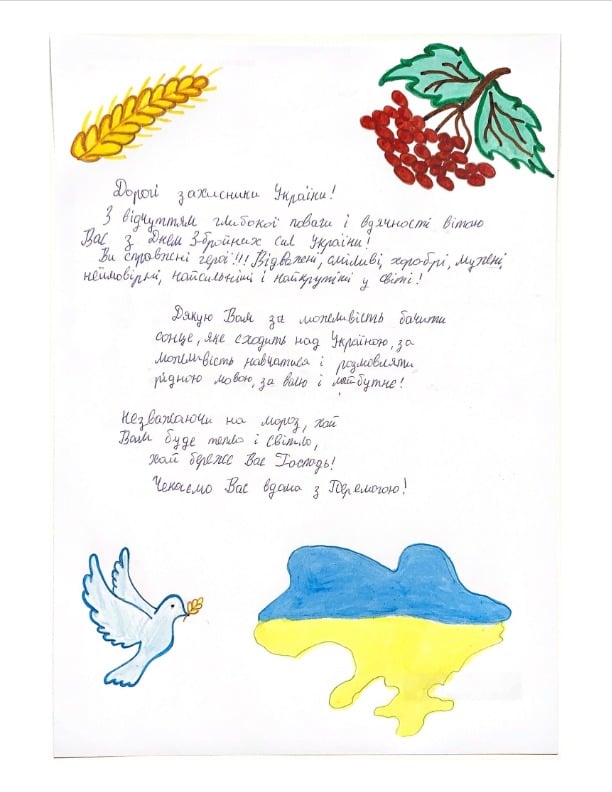 Дорогі захисники України!
З відчуттям глибокої поваги і вдячності вітаю
Вас з Днем Збройних Сил України!
Ви справжні герої!!! Відважені, сміливі, хоробрі, мужні,
неймовірні, найсильніші і найкрутіші у світі!
Дякую Вам за можливість бачити
сонце, яке сходить над Україною, за
можливість навчатися і розмовляти
рідною мовою, за волю і майбутнє!
Незважаючи на мороз, хай
Вам буде тепло і світло,
хай береже Вас Господь!
Чекаємо Вас вдома з Перемогою!